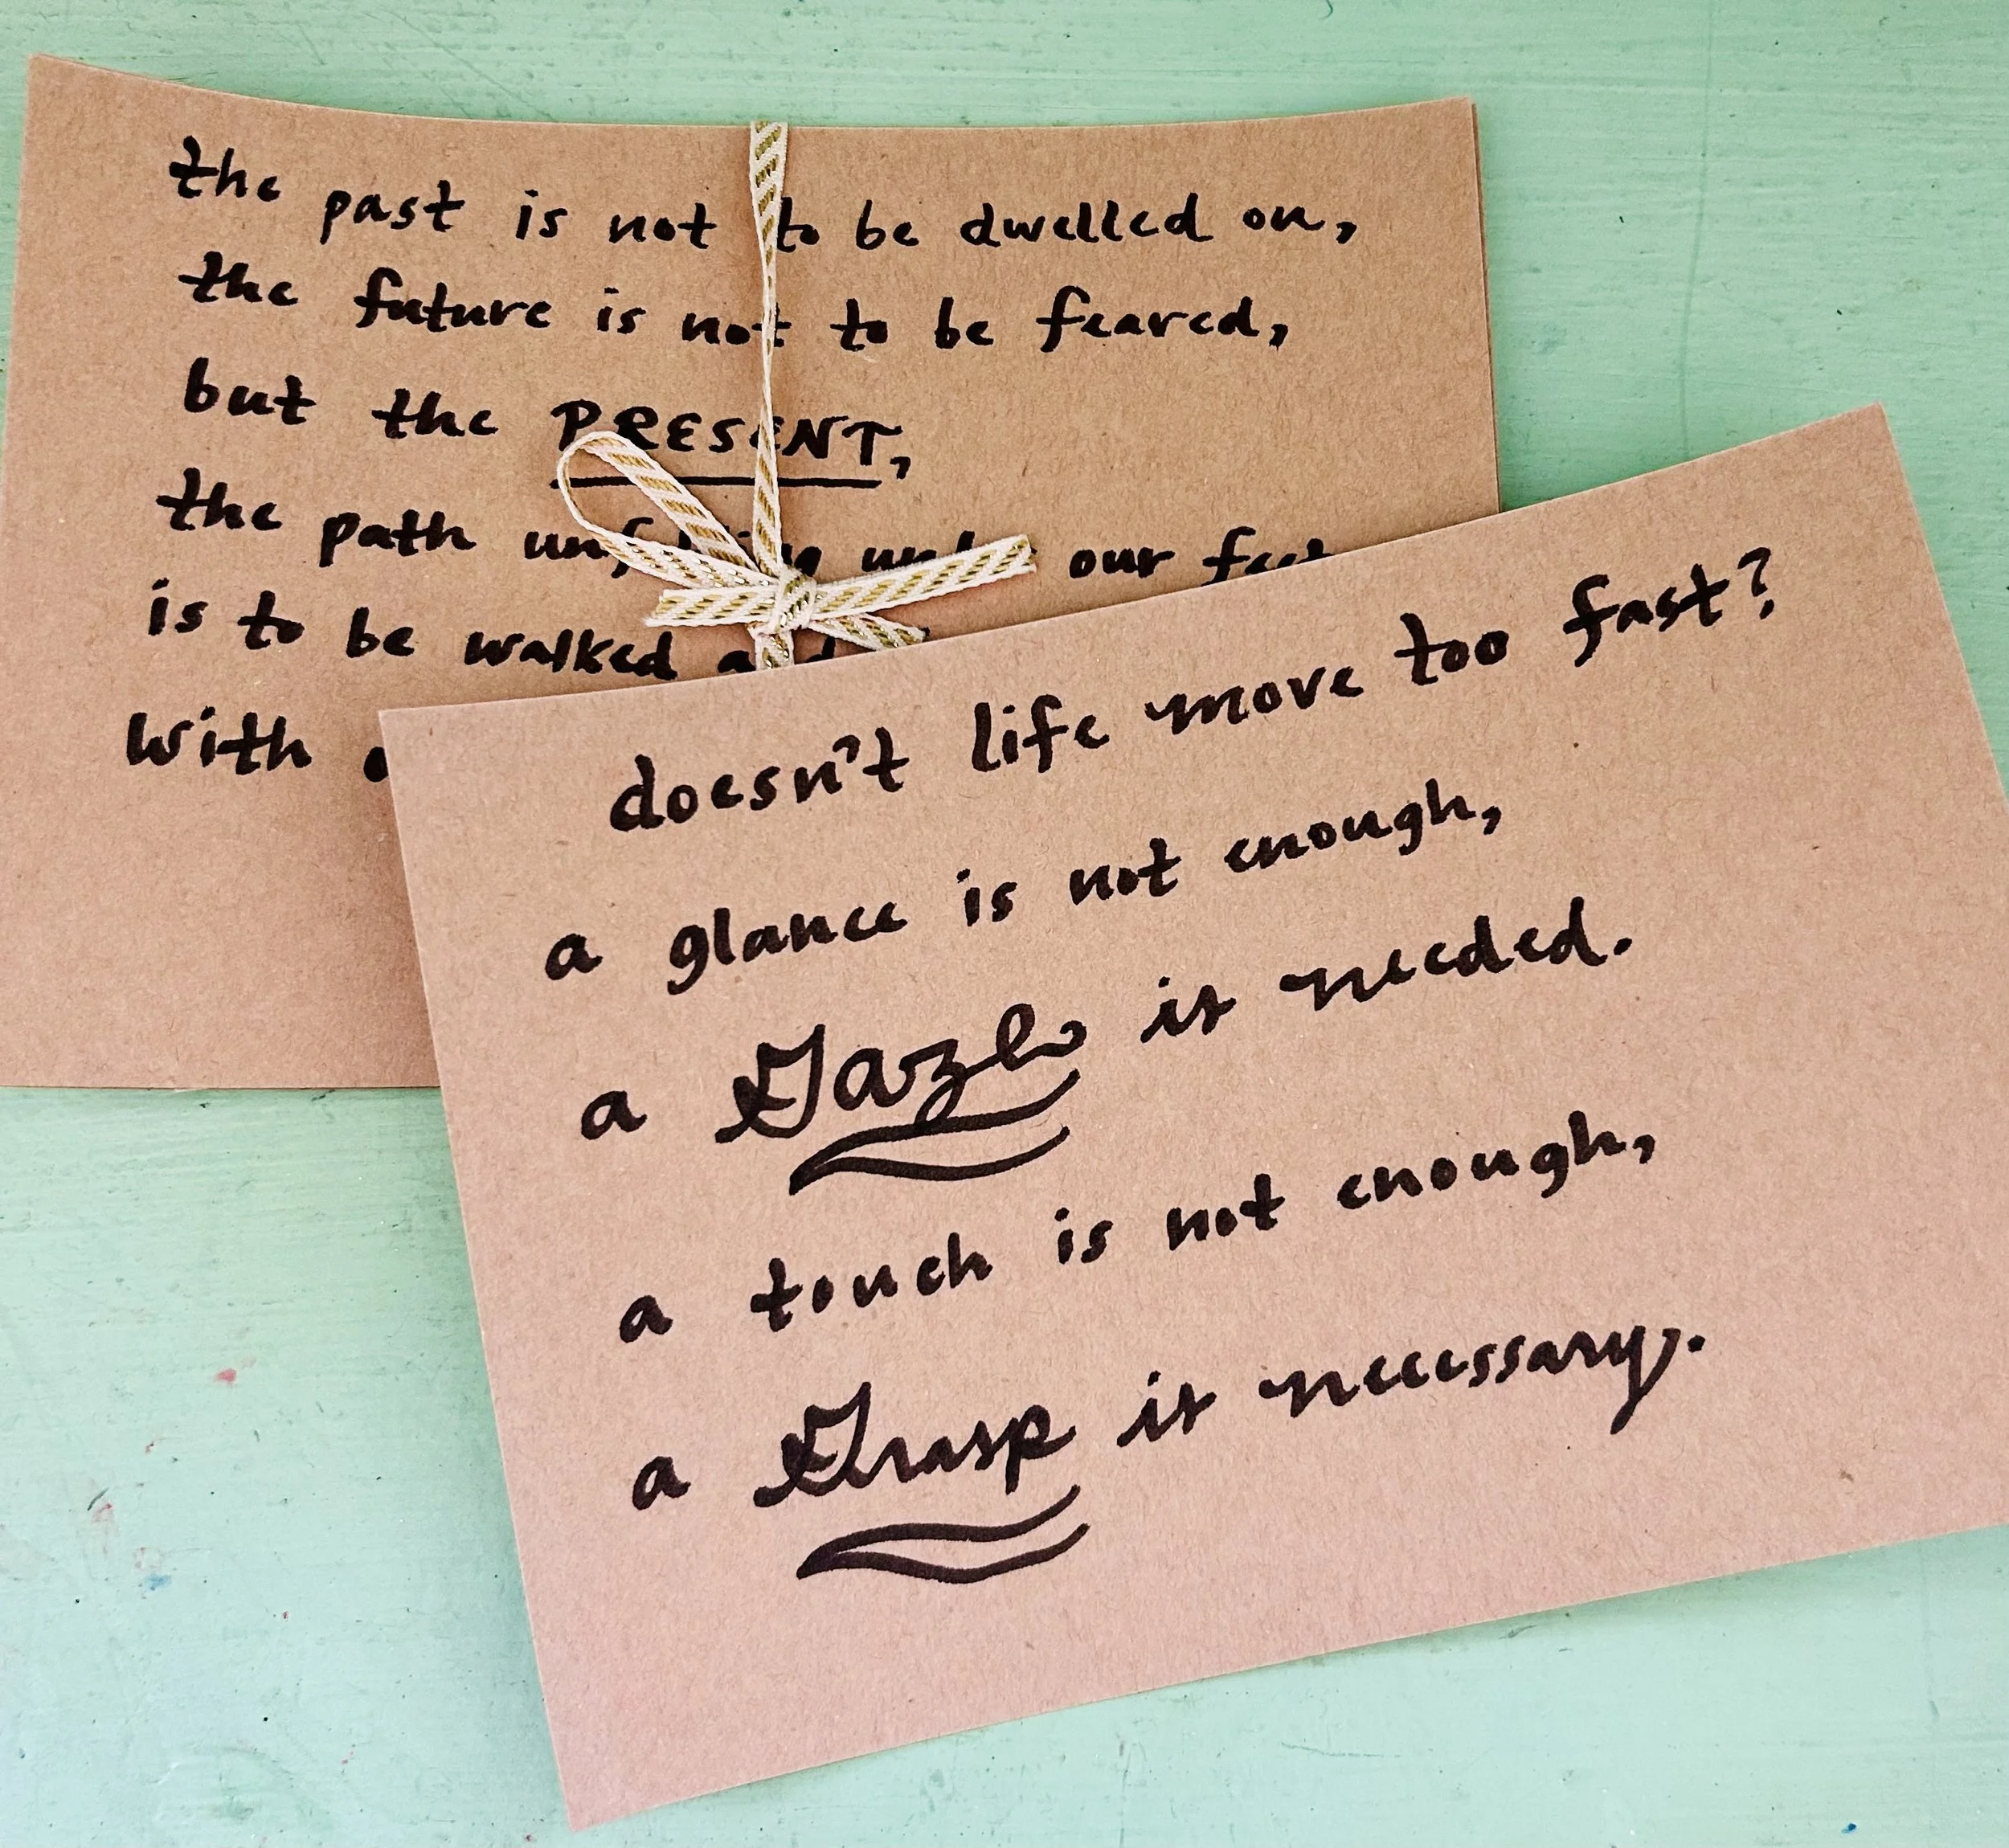 the past is not to be dwelled on,
the future is not to be feared,
but the PRESENT,
the path unfolding under our feet
is to be walked and
with
doesn't life move too fast?
a glance is not enough,
a Gaze is needed.
a touch is not enough,
a Grasp is necessary.